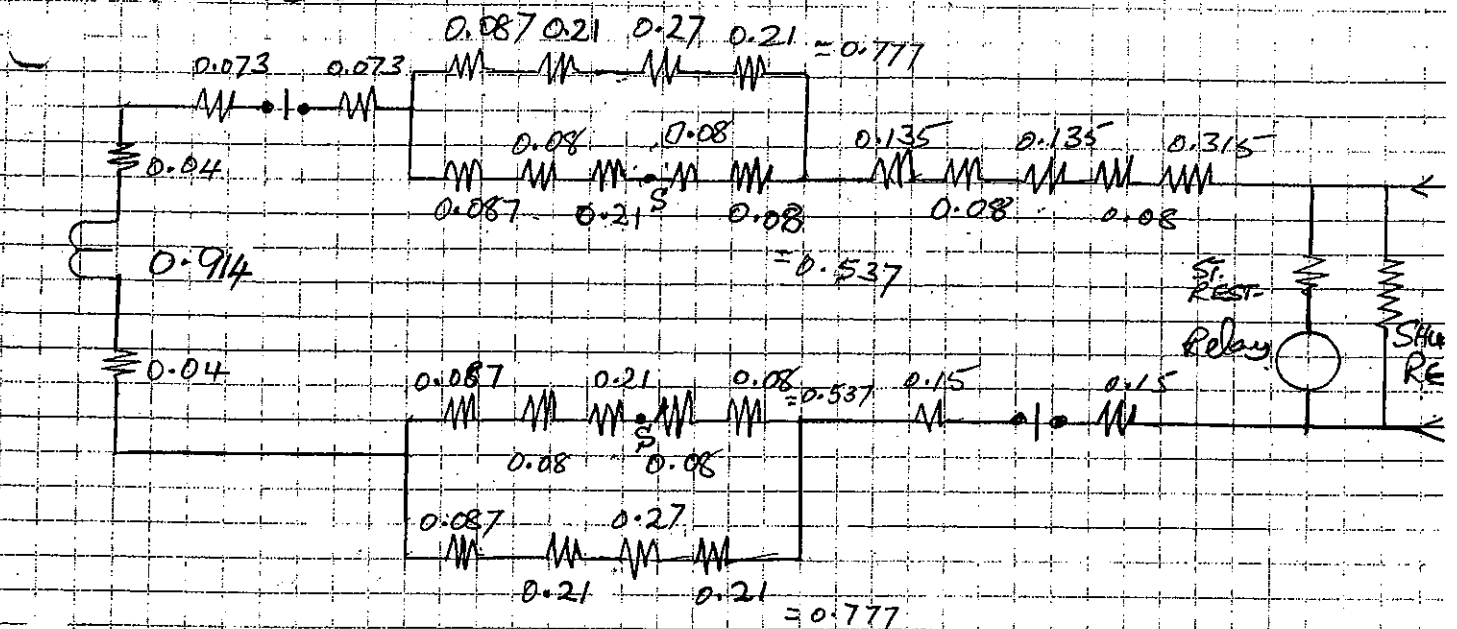 0.087 0.21 0.27 0.21 = 0.777
0.073 0.073
0.08 0.08 0.135 0.135 0.315
0.04
0.087 0.21 S 0.08 0.08 0.08
= 0.537
0.914
ST.
REST.
Relay
0.04
0.087 0.21 0.08 = 0.537 0.15 0.15
S
0.08 0.08
0.087 0.27
0.21 0.21
= 0.777